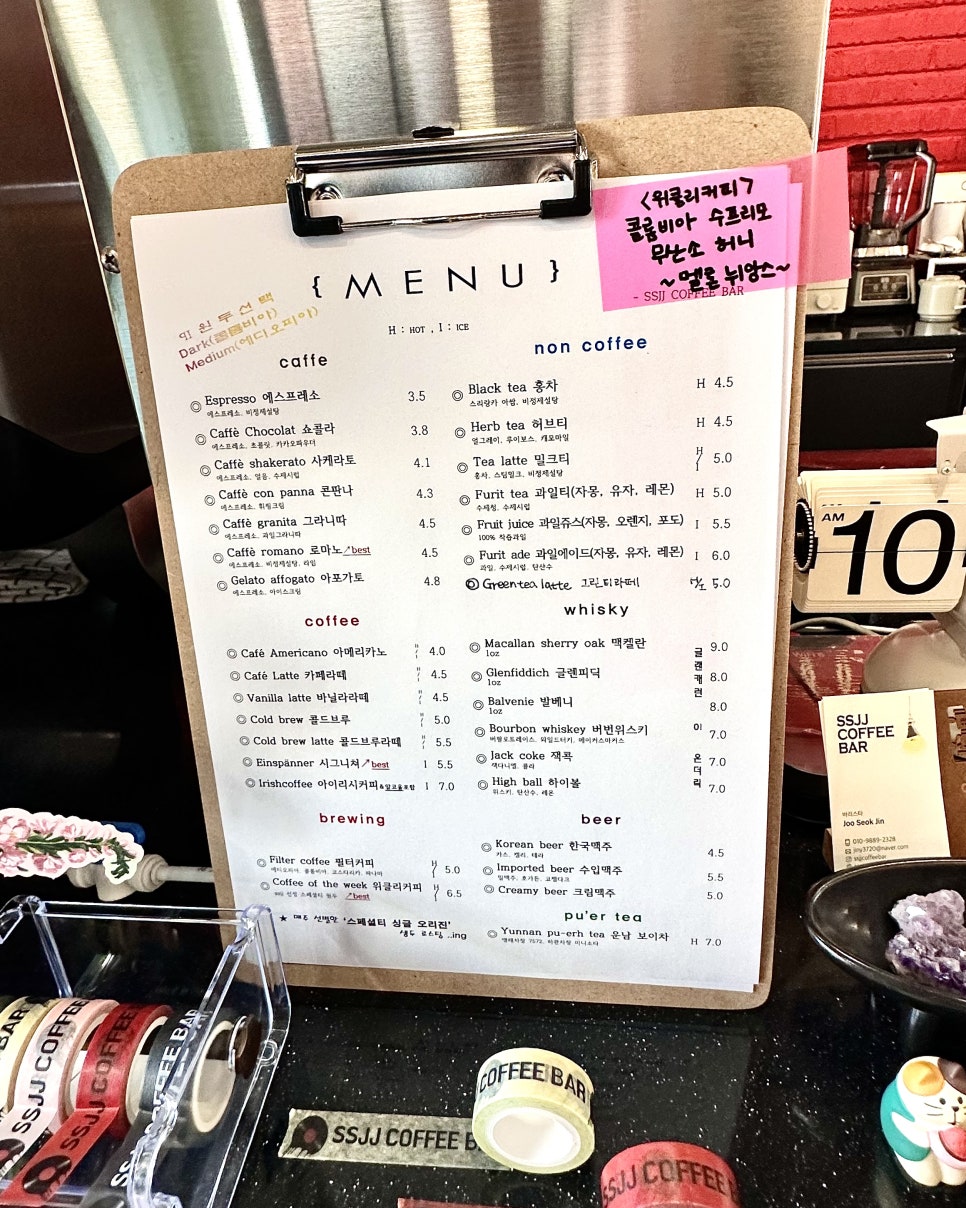 <위클리커피>
콜롬비아 수프리모
무산소 허니
~멜롱 뉘앙스~
{ MENU }
- SSJJ COFFEE BAR
H : HOT , I : ICE
원 두 선 택
Dark(콜롬비아)
Medium(에디오피아)
caffe
◎ Espresso 에스프레소 3.5
에스프레소, 비정제설탕
◎ Caffè Chocolat 쇼콜라 3.8
에스프레소, 초콜릿, 카카오파우더
◎ Caffè shakerato 사케라토 4.1
에스프레소, 얼음, 수제시럽
◎ Caffè con panna 콘판나 4.3
에스프레소, 휘핑크림
◎ Caffè granita 그라니따 4.5
에스프레소, 과일그라니따
◎ Caffè romano 로마노↗best 4.5
에스프레소, 비정제설탕, 라임
◎ Gelato affogato 아포가토 4.8
에스프레소, 아이스크림
coffee
◎ Café Americano 아메리카노 H/I 4.0
◎ Café Latte 카페라떼 H/I 4.5
◎ Vanilla latte 바닐라라떼 H/I 4.5
◎ Cold brew 콜드브루 H/I 5.0
◎ Cold brew latte 콜드브루라떼 H/I 5.5
◎ Einspänner 시그니쳐↗best I 5.5
◎ Irishcoffee 아이리시커피&알코올포함 I 7.0
brewing
◎ Filter coffee 필터커피 H/I 5.0
에디오피아, 콜롬비아, 코스타리카, 파나마
◎ Coffee of the week 위클리커피 H/I 6.5
스페셜티 원두 ↗best
★ 매주 선별한 '스페셜티 싱글 오리진'
생두 로스팅 ..ing
non coffee
◎ Black tea 홍차 H 4.5
스리랑카 아쌈, 비정제설탕
◎ Herb tea 허브티 H 4.5
얼그레이, 루이보스, 캐모마일
◎ Tea latte 밀크티 H/I 5.0
홍차, 스팀밀크, 비정제설탕
◎ Furit tea 과일티(자몽, 유자, 레몬) H 5.0
수제청, 수제시럽
◎ Fruit juice 과일쥬스(자몽, 오렌지, 포도) I 5.5
100% 착즙과일
◎ Furit ade 과일에이드(자몽, 유자, 레몬) I 6.0
과일, 수제시럽, 탄산수
◎ Greentea latte 그린티라떼 H/I 5.0
whisky
◎ Macallan sherry oak 맥켈란 9.0
1oz
◎ Glenfiddich 글렌피딕 8.0
1oz
◎ Balvenie 발베니 8.0
1oz
◎ Bourbon whiskey 버번위스키 7.0
버팔로트레이스, 와일드터키, 메이커스마커스
◎ Jack coke 잭콕 7.0
잭다니엘, 콜라
◎ High ball 하이볼 7.0
위스키, 탄산수, 레몬
글랜캐런
온더락
beer
◎ Korean beer 한국맥주 4.5
카스, 켈리, 테라
◎ Imported beer 수입맥주 5.5
◎ Creamy beer 크림맥주 5.0
pu'er tea
◎ Yunnan pu-erh tea 운남 보이차 H 7.0
AM
10
SSJJ
COFFEE
BAR
바리스타
Joo Seok Jin
010-9889-2328
jiny3720@naver.com
ssjjcoffeebar
BAR
SSJJ COFFEE
SSJJ COFFEE
COFFEE BAR
SSJJ COFFEE B
COFFEE BAR
SSJJ COFFEE B